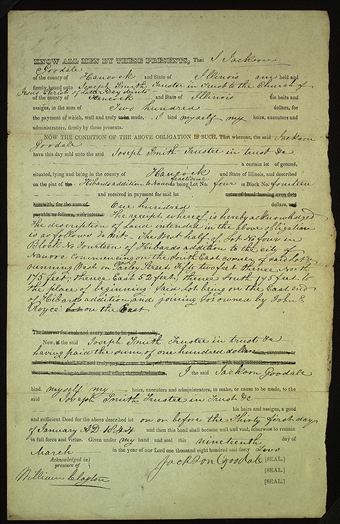 KNOW ALL MEN BY THESE PRESENTS, That I Jackson
Goodale
of the county of Hancock and State of Illinois am held and
firmly bound unto Joseph Smith Trustee in Trust to the Church of
Jesus Christ of Latter Day Saints
of the county of Hancock and State of Illinois his heirs
assigns, in the sum of Two hundred dollars, for
the payment of which, well and truly made, I bind myself, my heirs, executors and
administrators, firmly by these presents.
NOW THE CONDITION OF THE ABOVE OBLIGATION IS SUCH, That whereas, the said Jackson
Goodale
have this day sold unto the said Joseph Smith Trustee in trust &c
a certain lot of ground,
situated, lying and being in the county of Hancock and State of Illinois, and described
fractional
on the plat of Hibards addition to Nauvoo being Lot No. four in Block No. fourteen
and received in payment for said lot
One hundred dollars,
The receipt whereof is hereby acknowledged
The description of land intended in the above obligation
is as follows to wit. The West half of Lot No four in
Block No Fourteen of Hibards addition to the city of
Nauvoo commencing on the South East corner of said lot
running West on Parley Street Fifty two feet thence North
175 feet, thence East 52 feet, thence South 175 feet to
the place of beginning Said Lot being on the East side
of Hibards addition and joining Lot owned by John E.
Royce on the East
Now, if the said Joseph Smith Trustee in trust &c
having paid the sum of one hundred dollars
I the said Jackson Goodale
bind myself my heirs, executors and administrators, to make, or cause to be made, to the
said Joseph Smith Trustee in Trust &c
his heirs and assigns, a good
and sufficient Deed for the above described lot on or before the Thirty first day
of January A.D. 1844 and then this bond shall become null and void, otherwise to remain
in full force and virtue. Given under my hand and seal this nineteenth day of
March in the year of our Lord one thousand eight hundred and forty two
Acknowledged in
presence of
Jackson Goodale [SEAL.]
William Clayton
[SEAL.]
[SEAL.]